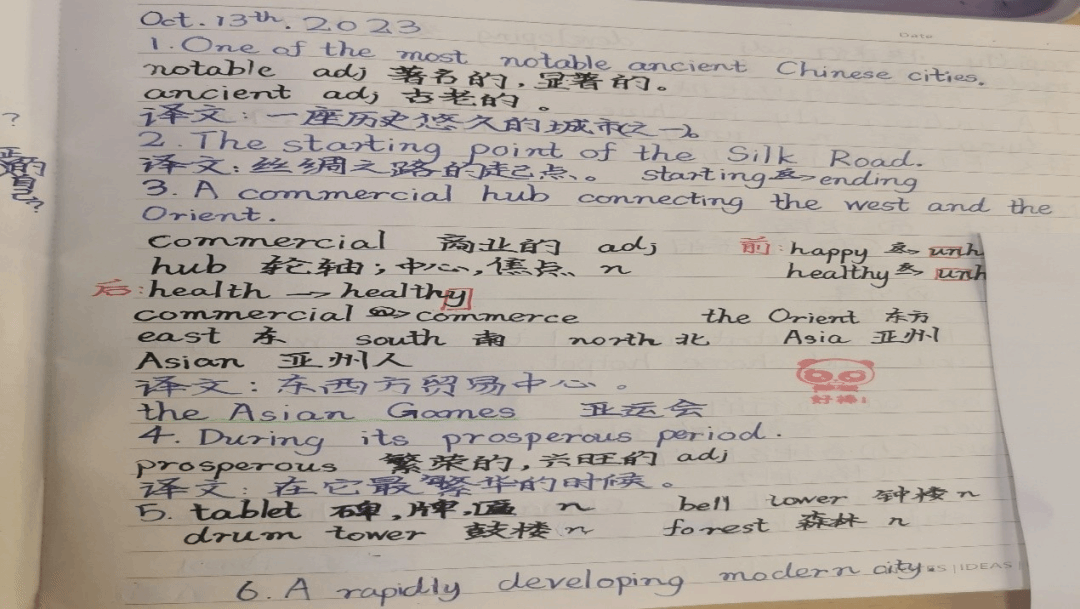 Date
Oct. 13th. 2023
1. One of the most notable ancient Chinese cities.
notable adj 著名的，显著的。
ancient adj 古老的。
译文：一座历史悠久的城市之一。
2. The starting point of the Silk Road.
译文：丝绸之路的起点。 starting 反→ ending
3. A commercial hub connecting the west and the
Orient.
commercial 商业的 adj 前：happy 反→ unh
hub 轮轴；中心，焦点 n healthy 反→ unh
后：health → healthy
commercial 名→ commerce the Orient 东方
east 东 south 南 north 北 Asia 亚州
Asian 亚州人
译文：东西方贸易中心。
好棒！
the Asian Games 亚运会
4. During its prosperous period.
prosperous 繁荣的，兴旺的 adj
译文：在它最繁华的时候。
5. tablet 碑，牌，匾 n bell tower 钟楼 n
drum tower 鼓楼 n forest 森林 n
6. A rapidly developing modern city.
S | IDEAS